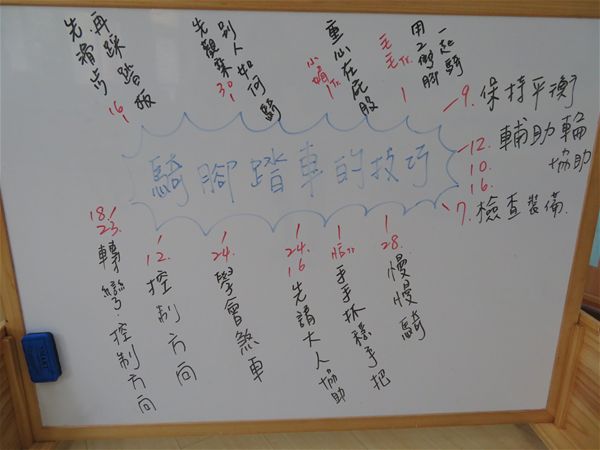 先滑步
再踩踏板
16.
先觀察
別人如何騎
30.
重心在屁股
用2個腳
一起騎
騎腳踏車的技巧
9. 保持平衡
12. 輔助輪
10. 協助
16.
7. 檢查裝備
18.
23.
轉彎.控制方向
12.
控制方向
24.
學會煞車
24.
16
先請大人協助
手手抓穩手把
28.
慢慢騎